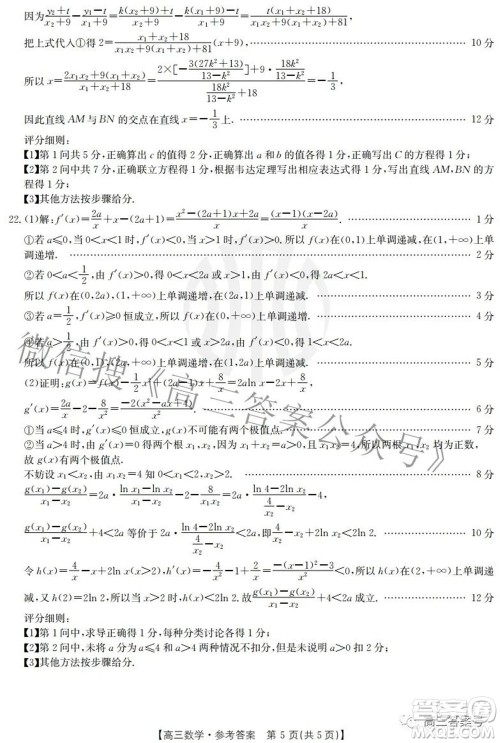 因为 y₁+t/x₂+9 = y₁−t/x₁+9 = k(x₂+9)+t/x₂+9 − k(x₁+9)+t/x₁+9 = t(x₁+x₂+18)/x₁x₂+9(x₁+x₂)+81
把上式代入①得 2= x₁+x₂+18/x₁x₂+9(x₁+x₂)+81 (x+9), 10 分
所以 x= 2x₁x₂+9(x₁+x₂)/x₁+x₂+18 = 2×[−3(27k²+13)/13−k²]+9·18k²/13−k² / 18k²/13−k²+18 =−1/3,
因此直线 AM 与 BN 的交点在直线 x=−1/3 上. 12 分
评分细则:
【1】第 1 问共 5 分,正确算出 c 的值得 2 分,正确算出 a 和 b 的值各得 1 分,正确写出 C 的方程得 1 分;
【2】第 2 问中共 7 分,根据韦达定理正确得到两根之和与两根之积得 1 分,正确写出直线 AM,BN 的方程得 1 分;
【3】其他方法按步骤给分.
22.(1)解: f′(x)=2a/x+x−(2a+1)=x²−(2a+1)x+2a/x=(x−1)(x−2a)/x. 1 分
①若 a≤0,当 0<x<1 时,f′(x)<0,当 x>1 时,f′(x)>0,所以 f(x)在(0,1)上单调递减,在(1,+∞)上单调递增. 2 分
②若 0<a<1/2,由 f′(x)>0,得 0<x<2a 或 x>1;由 f′(x)<0,得 2a<x<1.
所以 f(x)在(0,2a),(1,+∞)上单调递增,在(2a,1)上单调递减. 3 分
③若 a=1/2,f′(x)≥0 恒成立,所以 f(x)在(0,+∞)上单调递增. 4 分
④若 a>1/2,由 f′(x)>0,得 0<x<1 或 x>2a;由 f′(x)<0,得 1<x<2a.
所以 f(x)在(0,1),(2a,+∞)上单调递增,在(1,2a)上单调递减. 5 分
(2)证明: g(x)=f(x)−1/2x²+(2a−1)x+8/x=2aln x−2x+8/x,
g′(x)=2a/x−2−8/x²=2(−x²+ax−4)/x².
①当 a≤4 时,g′(x)≤0,g(x)没有极值点,不符合题意. 7 分
②当 a>4 时,g′(x)=0 的两个根 x₁,x₂,因为 x₁+x₂=a>4,x₁x₂=4,所以 x₁,x₂ 均为正数,
故 g(x)有两个极值点. 8 分
不妨设 x₁<x₂,由 x₁x₂=4 知 0<x₁<2,x₂>2,
g(x₁)−g(x₂)/x₁−x₂=2a·ln x₁−ln x₂/x₁−x₂−2−8/x₁x₂=2a·ln 4−2ln x₂/4/x₂−x₂−4,
g(x₁)−g(x₂)/x₁−x₂+4<2a 等价于 2a·ln 4−2ln x₂/4/x₂−x₂<2a,即 4/x₂−x₂+2ln x₂<2ln 2. 10 分
令 h(x)=4/x−x+2ln x(x>2),h′(x)=−4/x²−1+2/x=−(x−1)²−3/x²<0,所以 h(x)在(2,+∞)上单调递
减,又 h(2)=2ln 2,所以 h(x)<2ln 2.故 g(x₁)−g(x₂)/x₁−x₂+4<2a. 12 分
评分细则:
【1】第 1 问中,求导正确得 1 分,每种分类讨论各得 1 分;
【2】第 2 问中,未分 a≤4 与 a>4 两种情况不扣分,但要说明 a>0,否则扣 1 分;
【3】其他方法按步骤给分.
【高三数学·参考答案 第 5 页(共 5 页)】
微信搜《高三答案公众号》
高三答案号